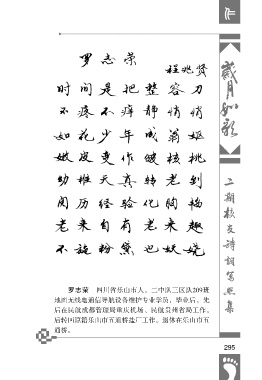 罗志荣
程兆贤
时间是把整容刀
不疼不痒静悄悄
如花少年成翁妪
嫩皮变作皱核桃
幼稚天真转老到
阅历经验化胸
老来自有老来趣
不施粉黛也妖娆
罗志荣 四川省乐山市人。二中队三区队209班
地面无线电通信导航设备维护专业学员，毕业后，先
后在民航成都管理局重庆机场、民航贵州省局工作。
后转回原籍乐山市五通桥盐厂工作。退休在乐山市五
通桥。
作
岁月如歌
二期校友诗词写照集
295